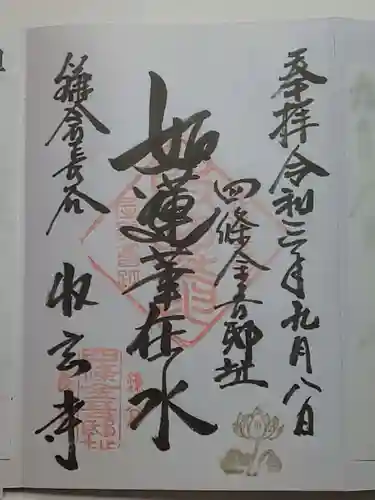 奉拝 令和三年九月八日
四條金吾邸址
如蓮華在水
鎌倉長谷
収玄寺